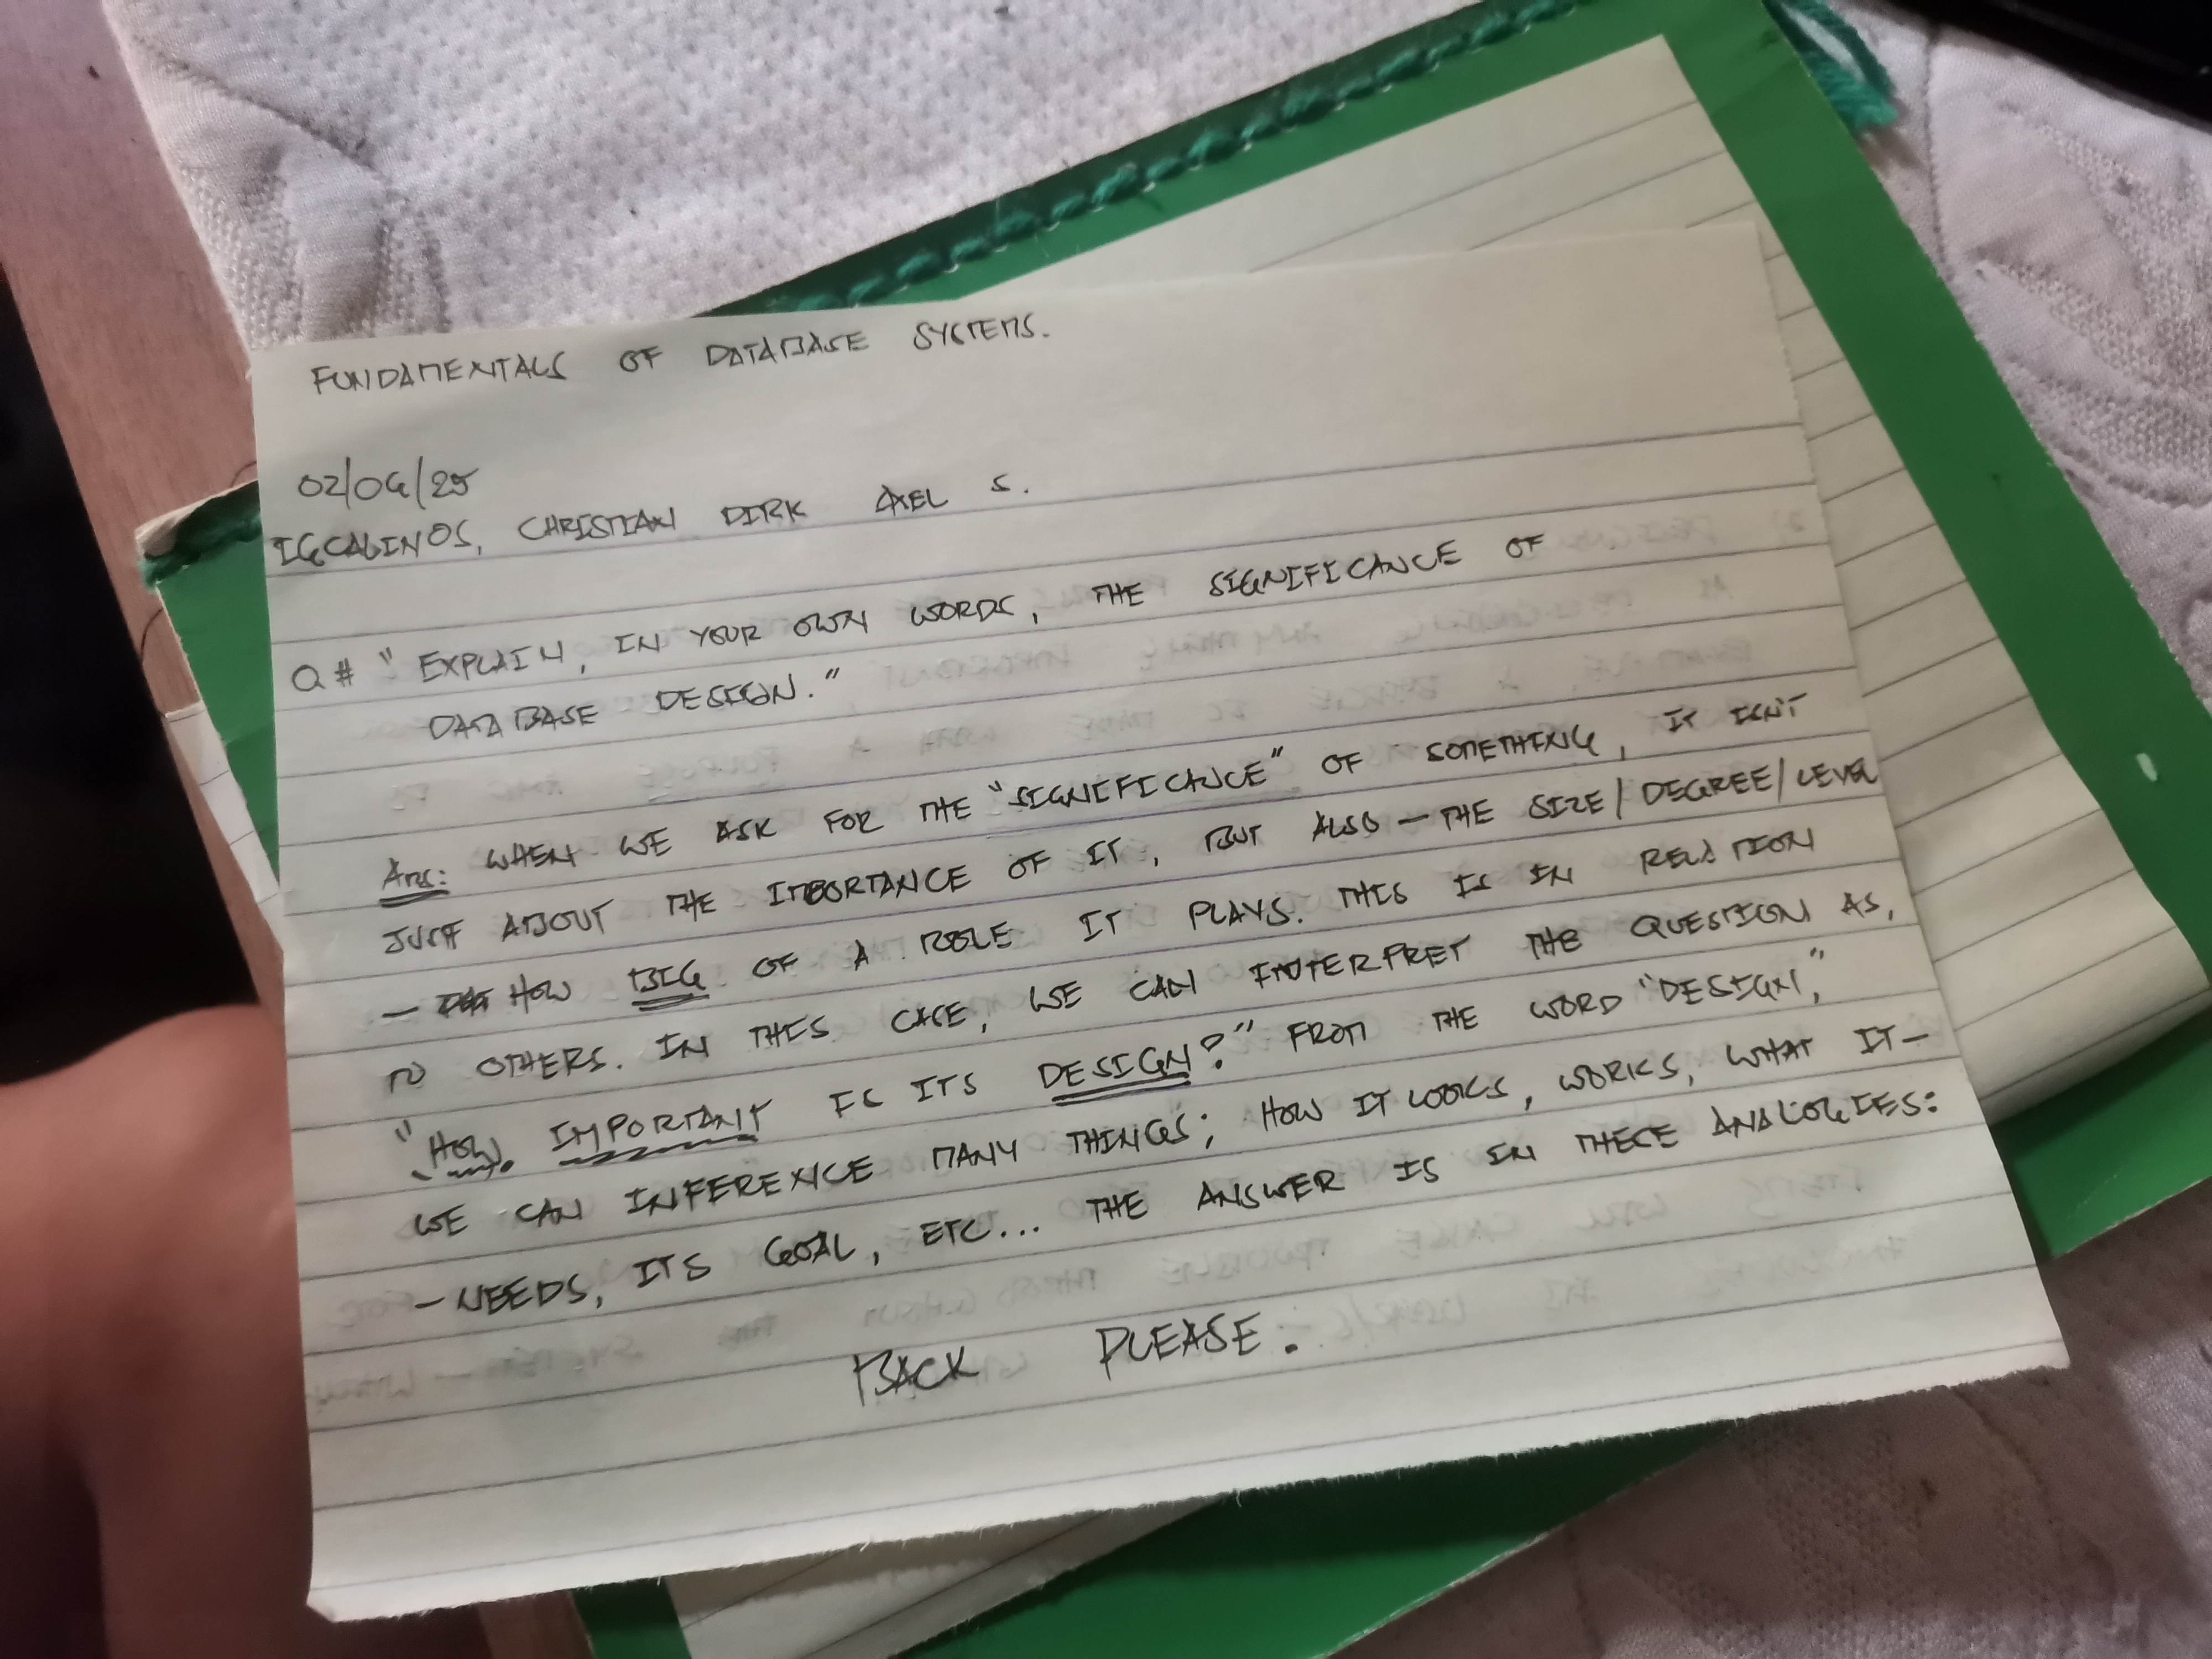 FUNDAMENTALS OF DATABASE SYSTEMS.
02/06/25
IGCALINOS, CHRISTIAN DIRK AXEL S.
Q# "EXPLAIN, IN YOUR OWN WORDS, THE SIGNIFICANCE OF
DATABASE DESIGN."
Ans: WHEN WE ASK FOR THE "SIGNIFICANCE" OF SOMETHING, IT ISN'T
JUST ABOUT THE IMPORTANCE OF IT, BUT ALSO — THE SIZE/DEGREE/LEVEL
— HOW BIG OF A ROLE IT PLAYS. THIS IS IN RELATION
TO OTHERS. IN THIS CASE, WE CAN INTERPRET THE QUESTION AS,
"HOW IMPORTANT IS ITS DESIGN?" FROM THE WORD "DESIGN,"
WE CAN INFERENCE MANY THINGS; HOW IT LOOKS, WORKS, WHAT IT—
— NEEDS, ITS GOAL, ETC... THE ANSWER IS IN THESE ANALOGIES:
BACK PLEASE.